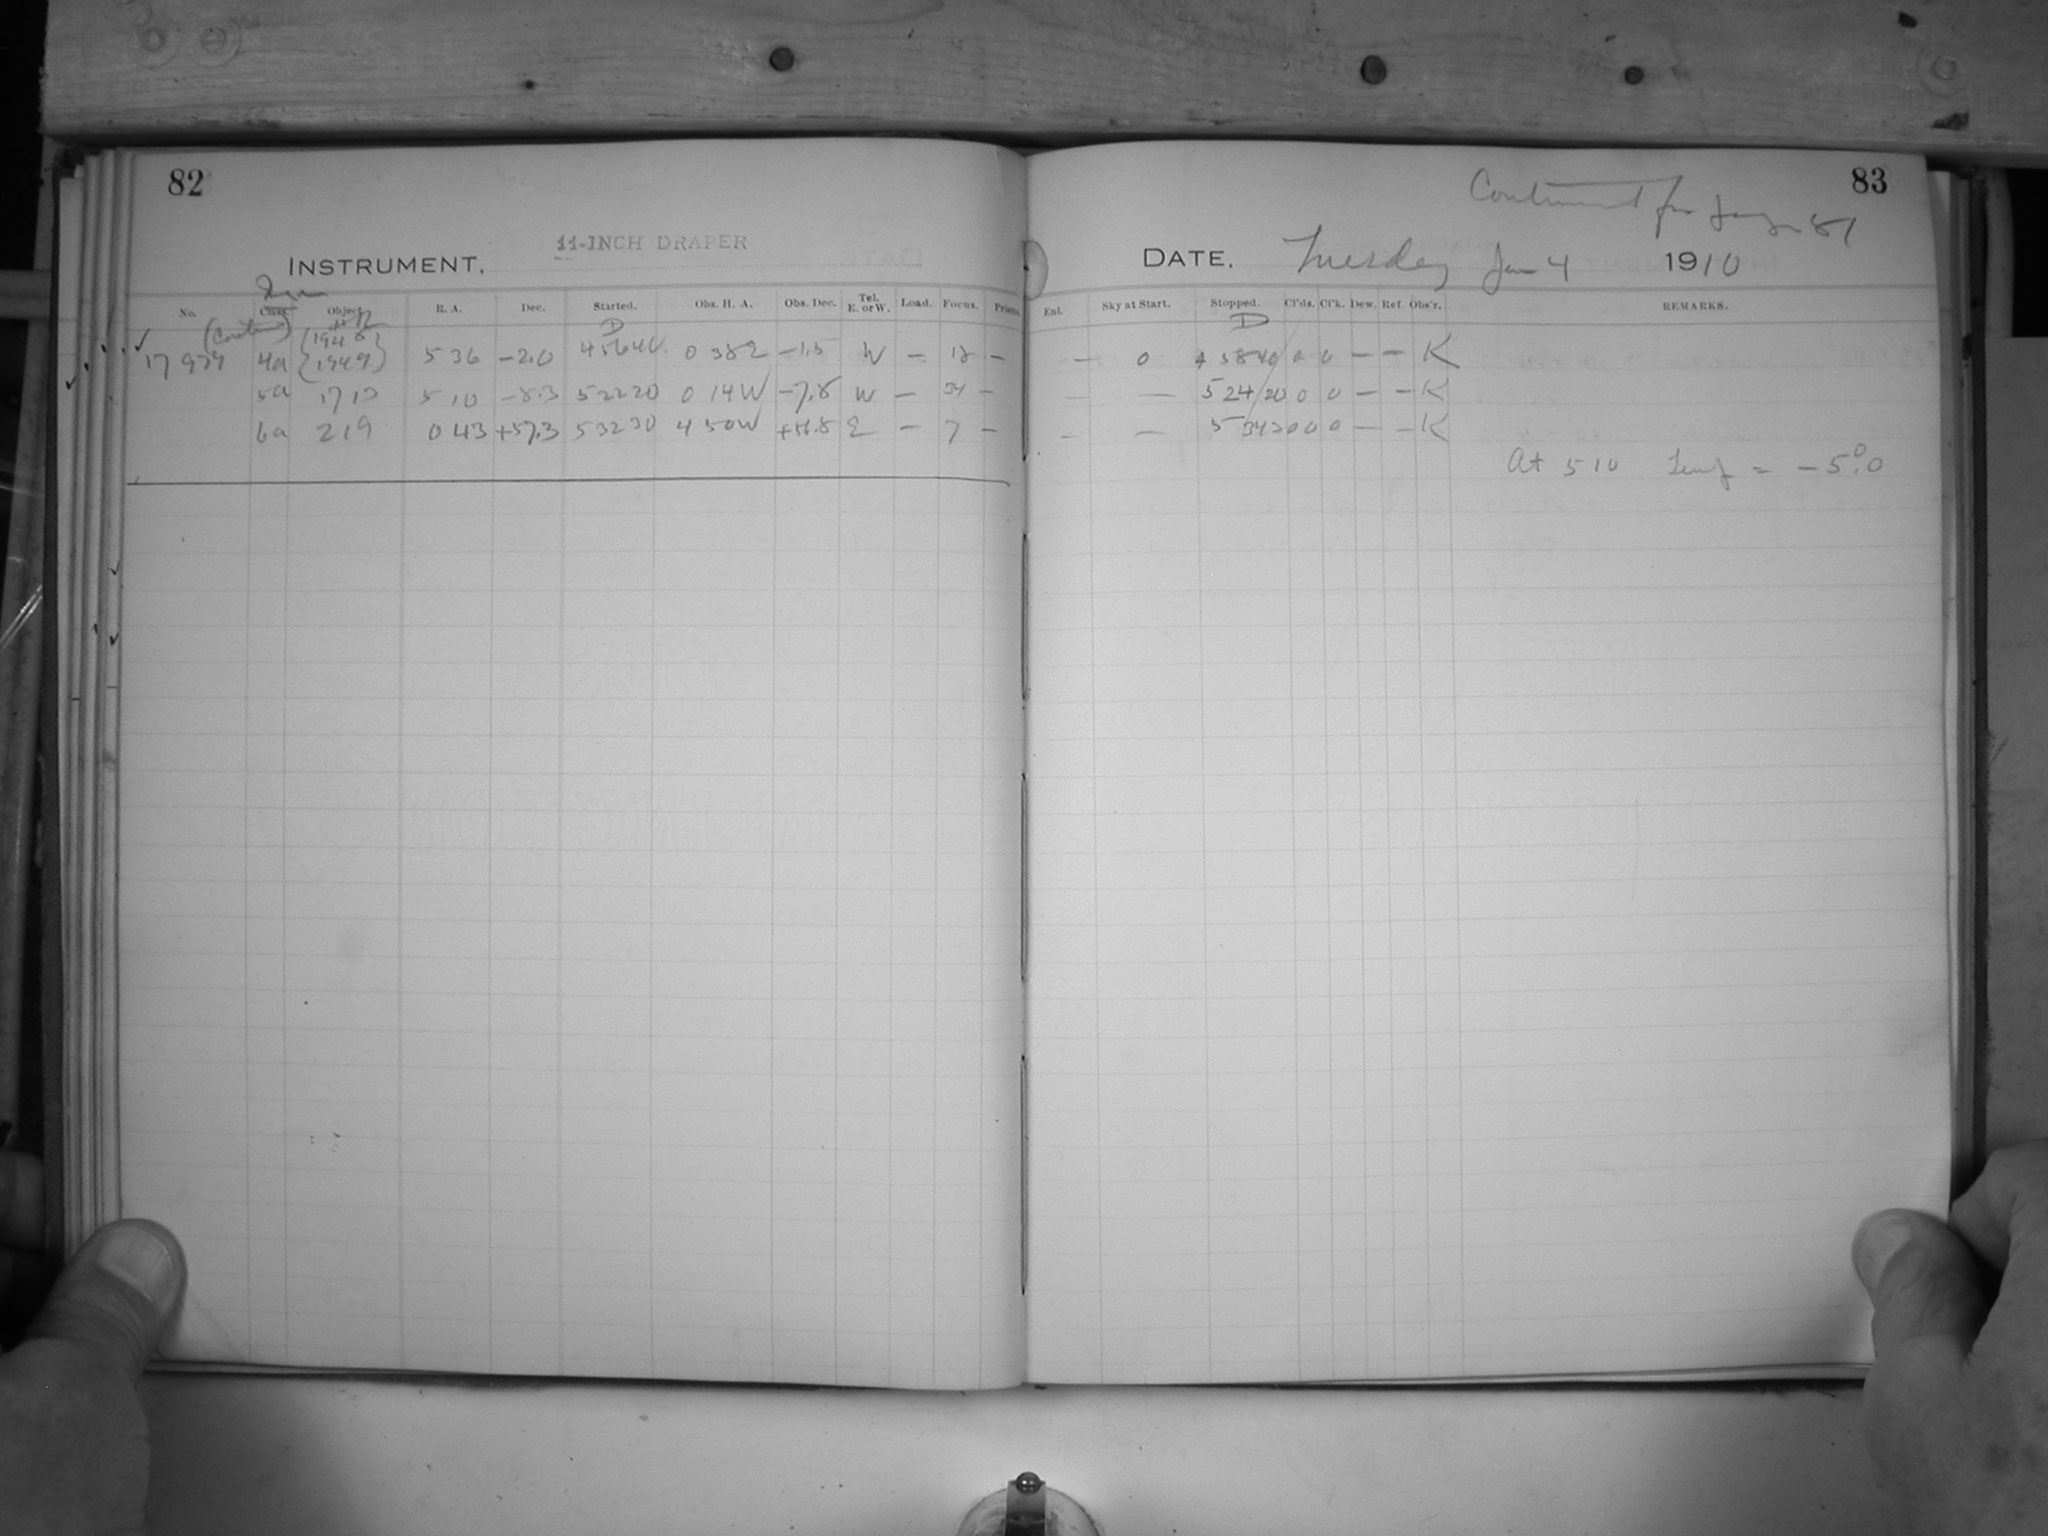 82
11-INCH DRAPER
INSTRUMENT.
No. Class. Object. R. A. Dec. Started. Obs. H. A. Obs. Dec. Tel. E. or W. Load. Focus. Prisms
D
1948
4a 1949 5 36 -2.0 4 56 40 0 38 E -1.5 W - 12 -
5a 5 10 -8.3 5 22 20 0 14 W -7.8 W - -
6a 219 0 43 +57.3 5 32 30 4 50 W E - 7 -
83
Continued from page 81
DATE. Tuesday Jan 4 1910
Ent. Sky at Start. Stopped. Cl'ds. Cl'k. Dew. Ref. Obs'r. REMARKS.
D
- 0 4 58 40 0 0 - - K
- - 5 24 20 0 0 - - K
- - 5 34 30 0 0 - - K
At 5 10 Temp = -5°.0